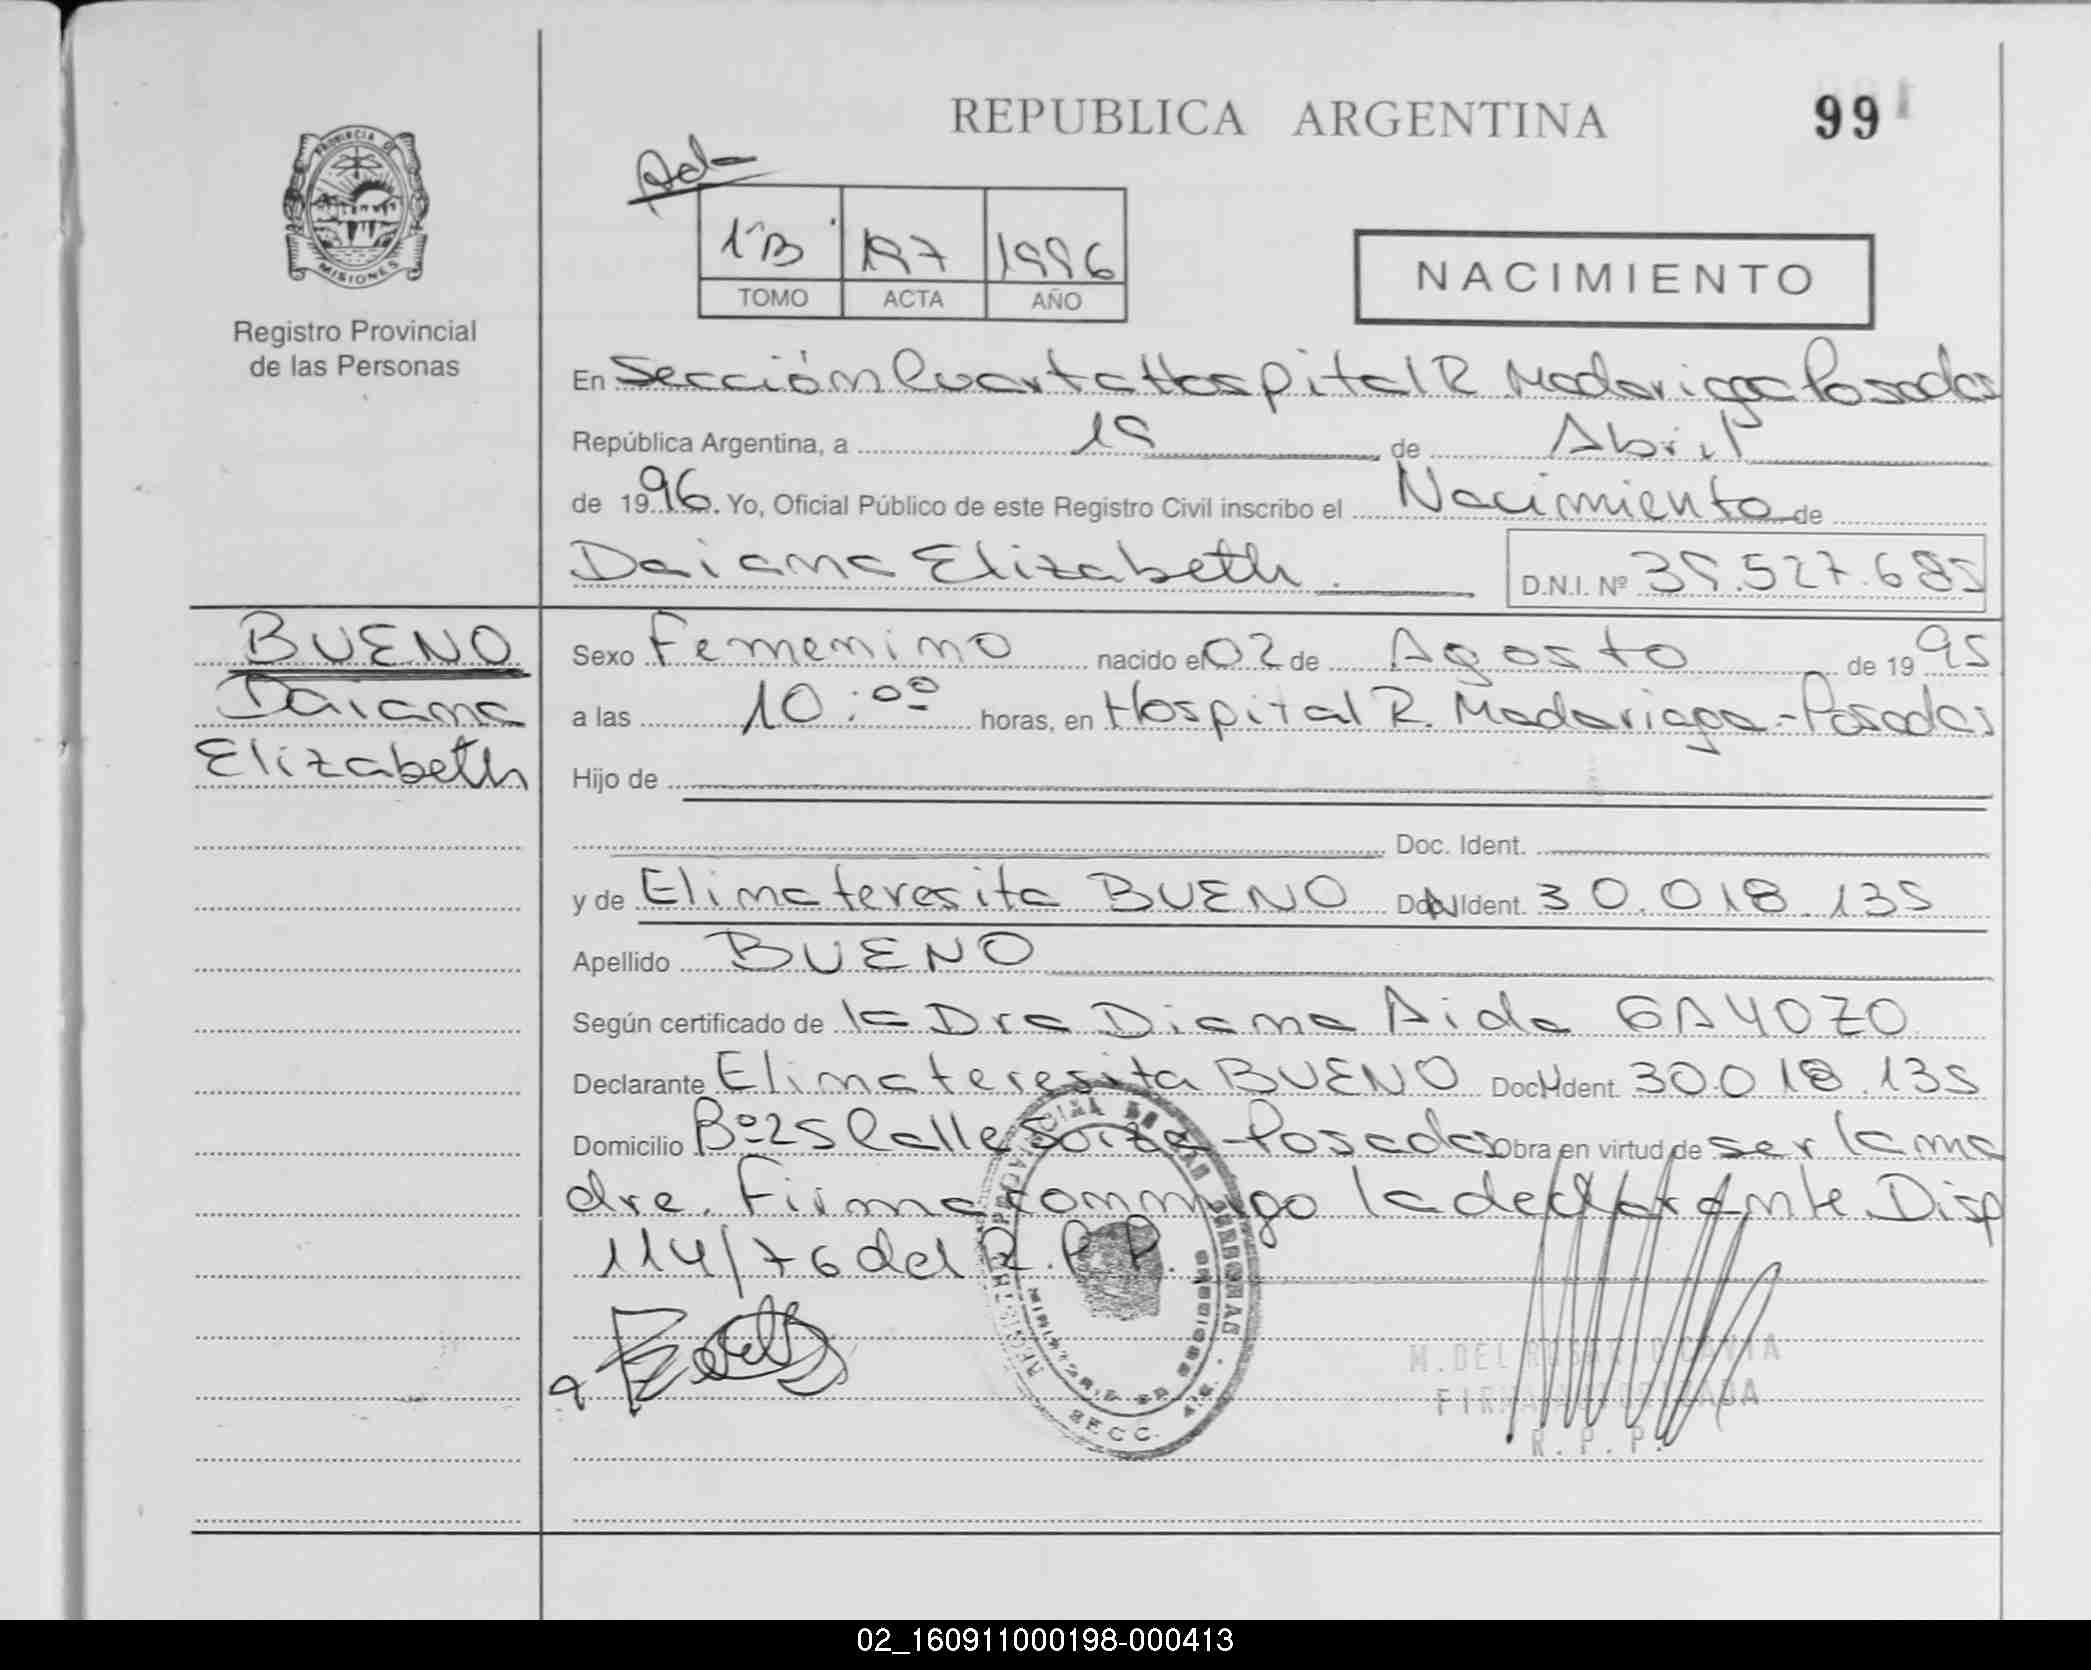 REPUBLICA ARGENTINA
99
Acta
1ºB 197 1996
TOMO ACTA AÑO
NACIMIENTO
PROVINCIA DE
MISIONES
Registro Provincial
de las Personas
En Sección Cuarta Hospital R. Madariaga Posadas
República Argentina, a 19 de Abril
de 1996. Yo, Oficial Público de este Registro Civil inscribo el Nacimiento de
Daiana Elizabeth. D.N.I. Nº 39.527.685
BUENO
Daiana
Elizabeth
Sexo Femenino nacido el 02 de Agosto de 1995
a las 10:00 horas, en Hospital R. Madariaga - Posadas
Hijo de
Doc. Ident.
y de Elina teresita BUENO Doc. Ident. 30.018.135
Apellido BUENO
Según certificado de la Dra Diana Aida GAYOZO
Declarante Elina teresita BUENO Doc. Ident. 30.018.135
Domicilio Bº 25 Calle - Posadas Obra en virtud de ser la ma
dre. Firma conmigo la declarante Disp
114/76 del R.P.P.
SECC. 4ta.
M. DEL ROSARIO
FIRMA AUTORIZADA
R. P. P.
02_160911000198-000413